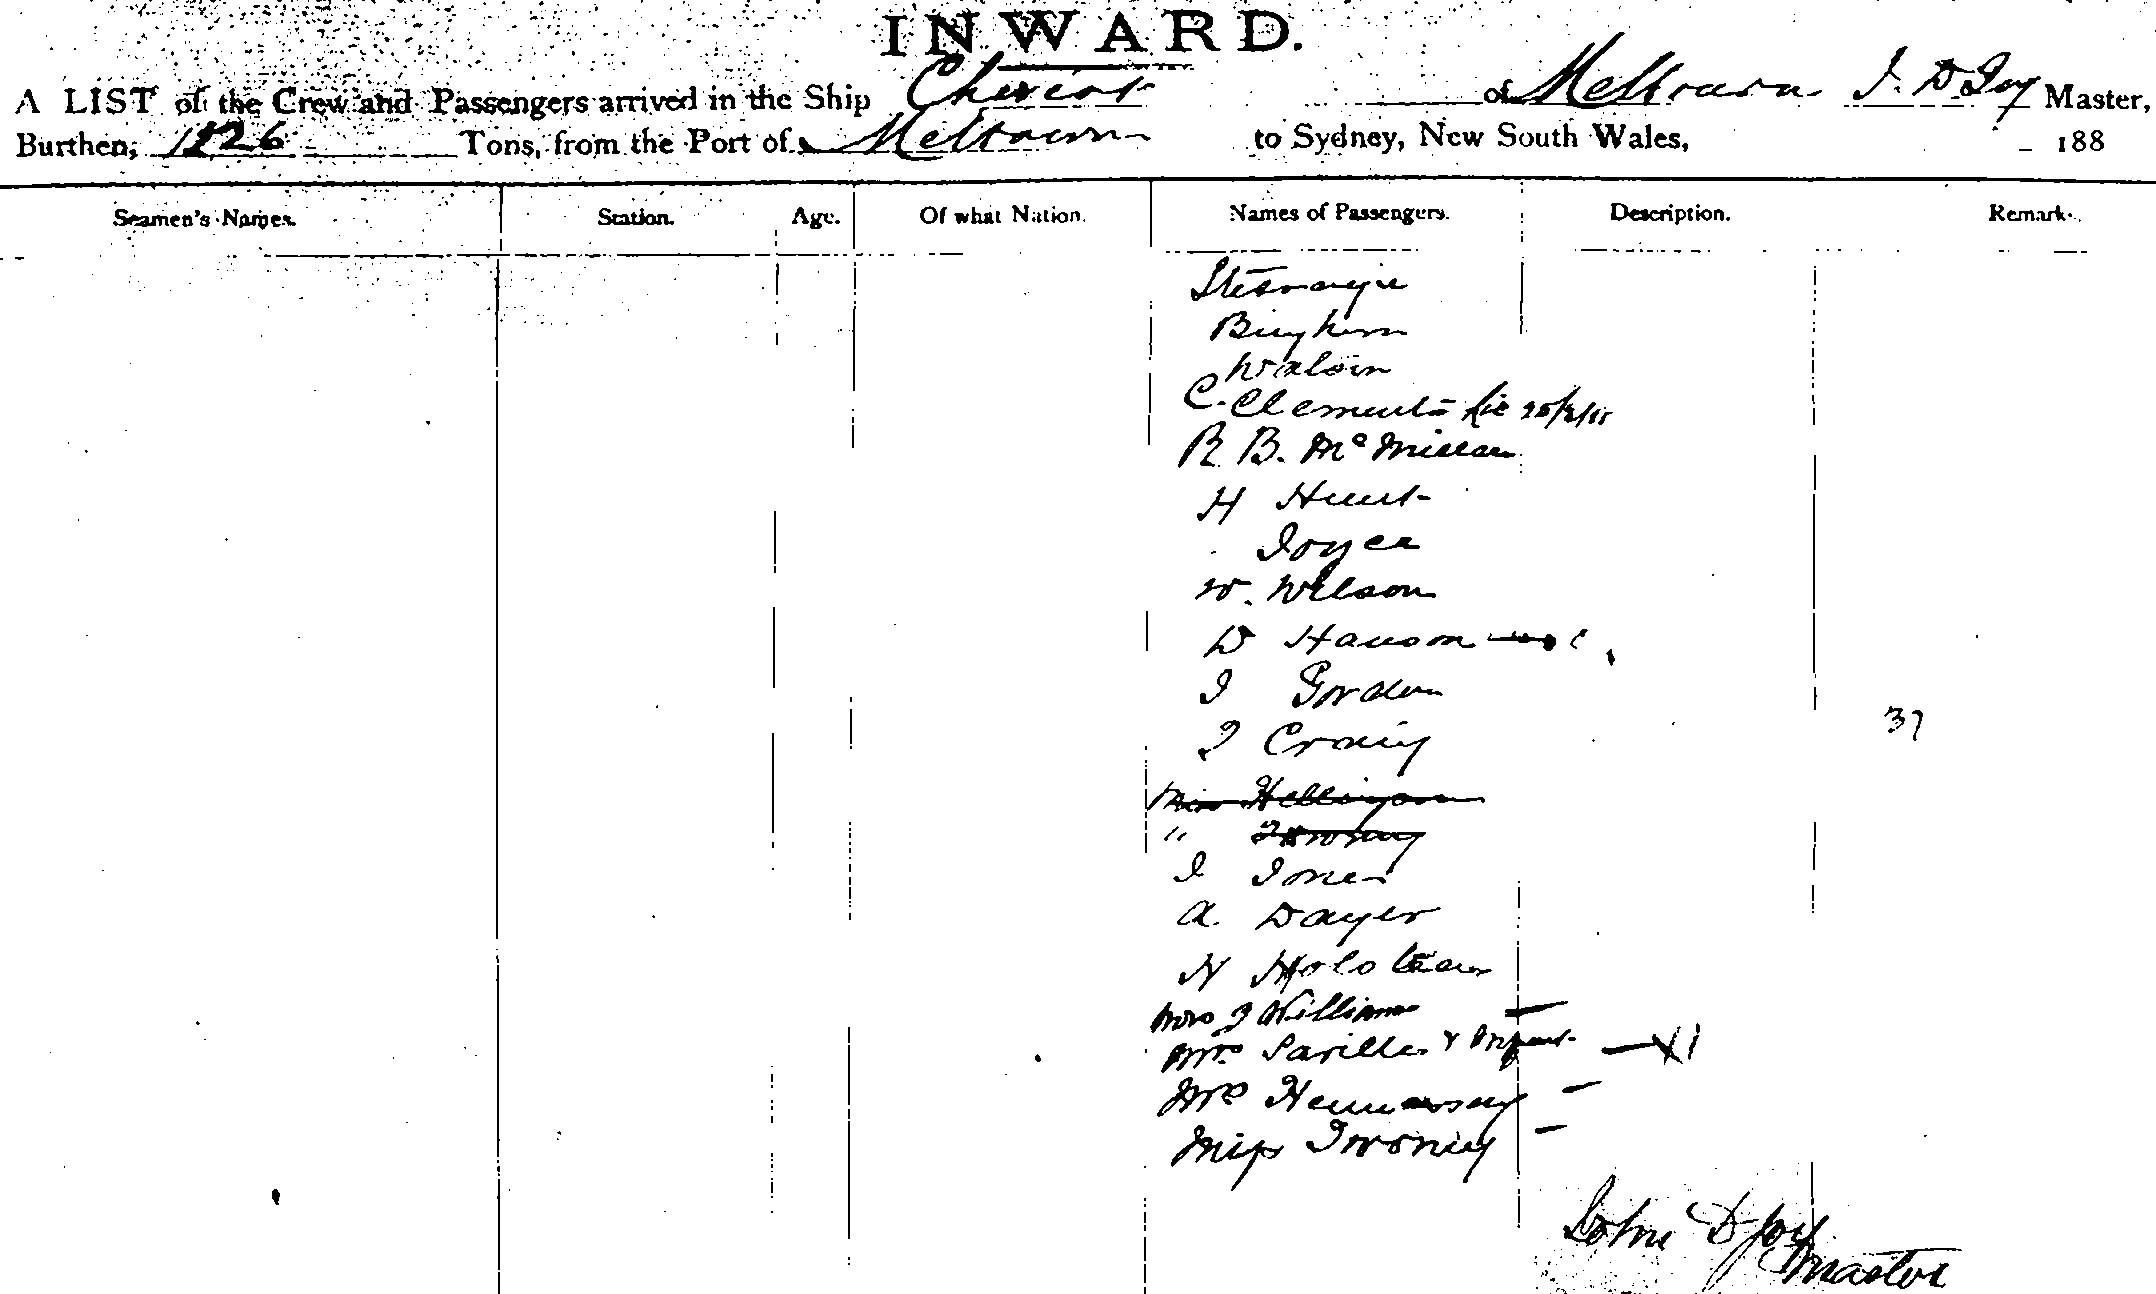 INWARD.
A LIST of the Crew and Passengers arrived in the Ship Cheviot of Melbourn J. D Joy Master,
Burthen, 1226 Tons, from the Port of Melbourn to Sydney, New South Wales, 188
Seamen's Names. Station. Age. Of what Nation. Names of Passengers. Description. Remark
Steerage
Bingham
Watson
C. Clements
R B. Mc Millan
H Hunt
Joyce
W. Wilson
D Hanson
J Gordon
37
J Craig
Miss
"
J Jones
A. Dayer
N
Mrs J Williams
Mrs Saville & Infant 1
Mrs Hennessy
Miss Twomey
John D Joy
Master